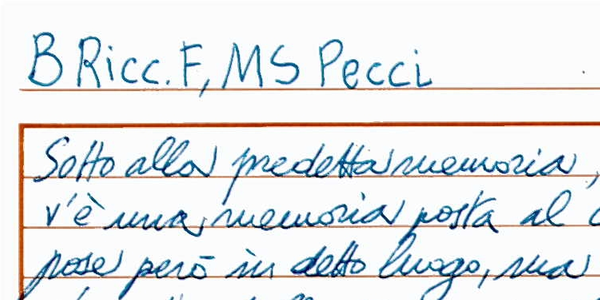 B Ricc. F, MS Pecci
Sotto alla predetta memoria,
v'è una memoria posta al
pose però in detto luogo, ma